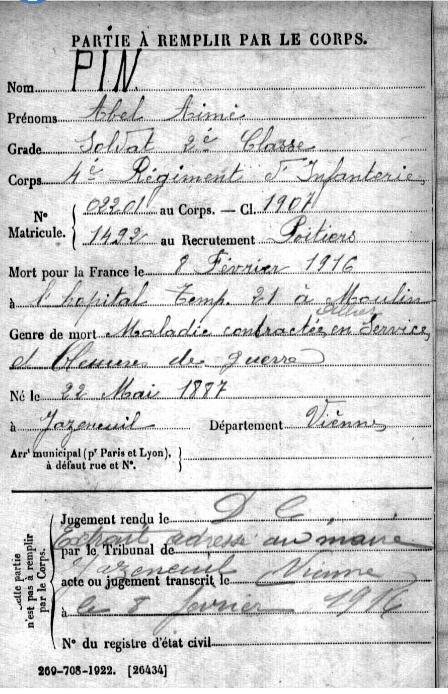 PARTIE À REMPLIR PAR LE CORPS.
Nom PIN
Prénoms Abel Aimé
Grade Soldat 2è Classe
Corps 4è Régiment d'Infanterie
N° Matricule. { 02201 au Corps. — Cl. 1907
1492 au Recrutement Poitiers
Mort pour la France le 8 Février 1916
à l'hopital Temp. 21 à Moulin
Allier
Genre de mort Maladie contractée en Service
et blessures de guerre
Né le 22 Mai 1887
à Jazeneuil Département Vienne
Arrt municipal (pr Paris et Lyon), à défaut rue et N°.
Cette partie n'est pas à remplir par le Corps.
Jugement rendu le D C
Extrait adressé au maire
par le Tribunal de
Jazeneuil Vienne
acte ou jugement transcrit le
à le février 1916
N° du registre d'état civil
269-708-1922. [26434]